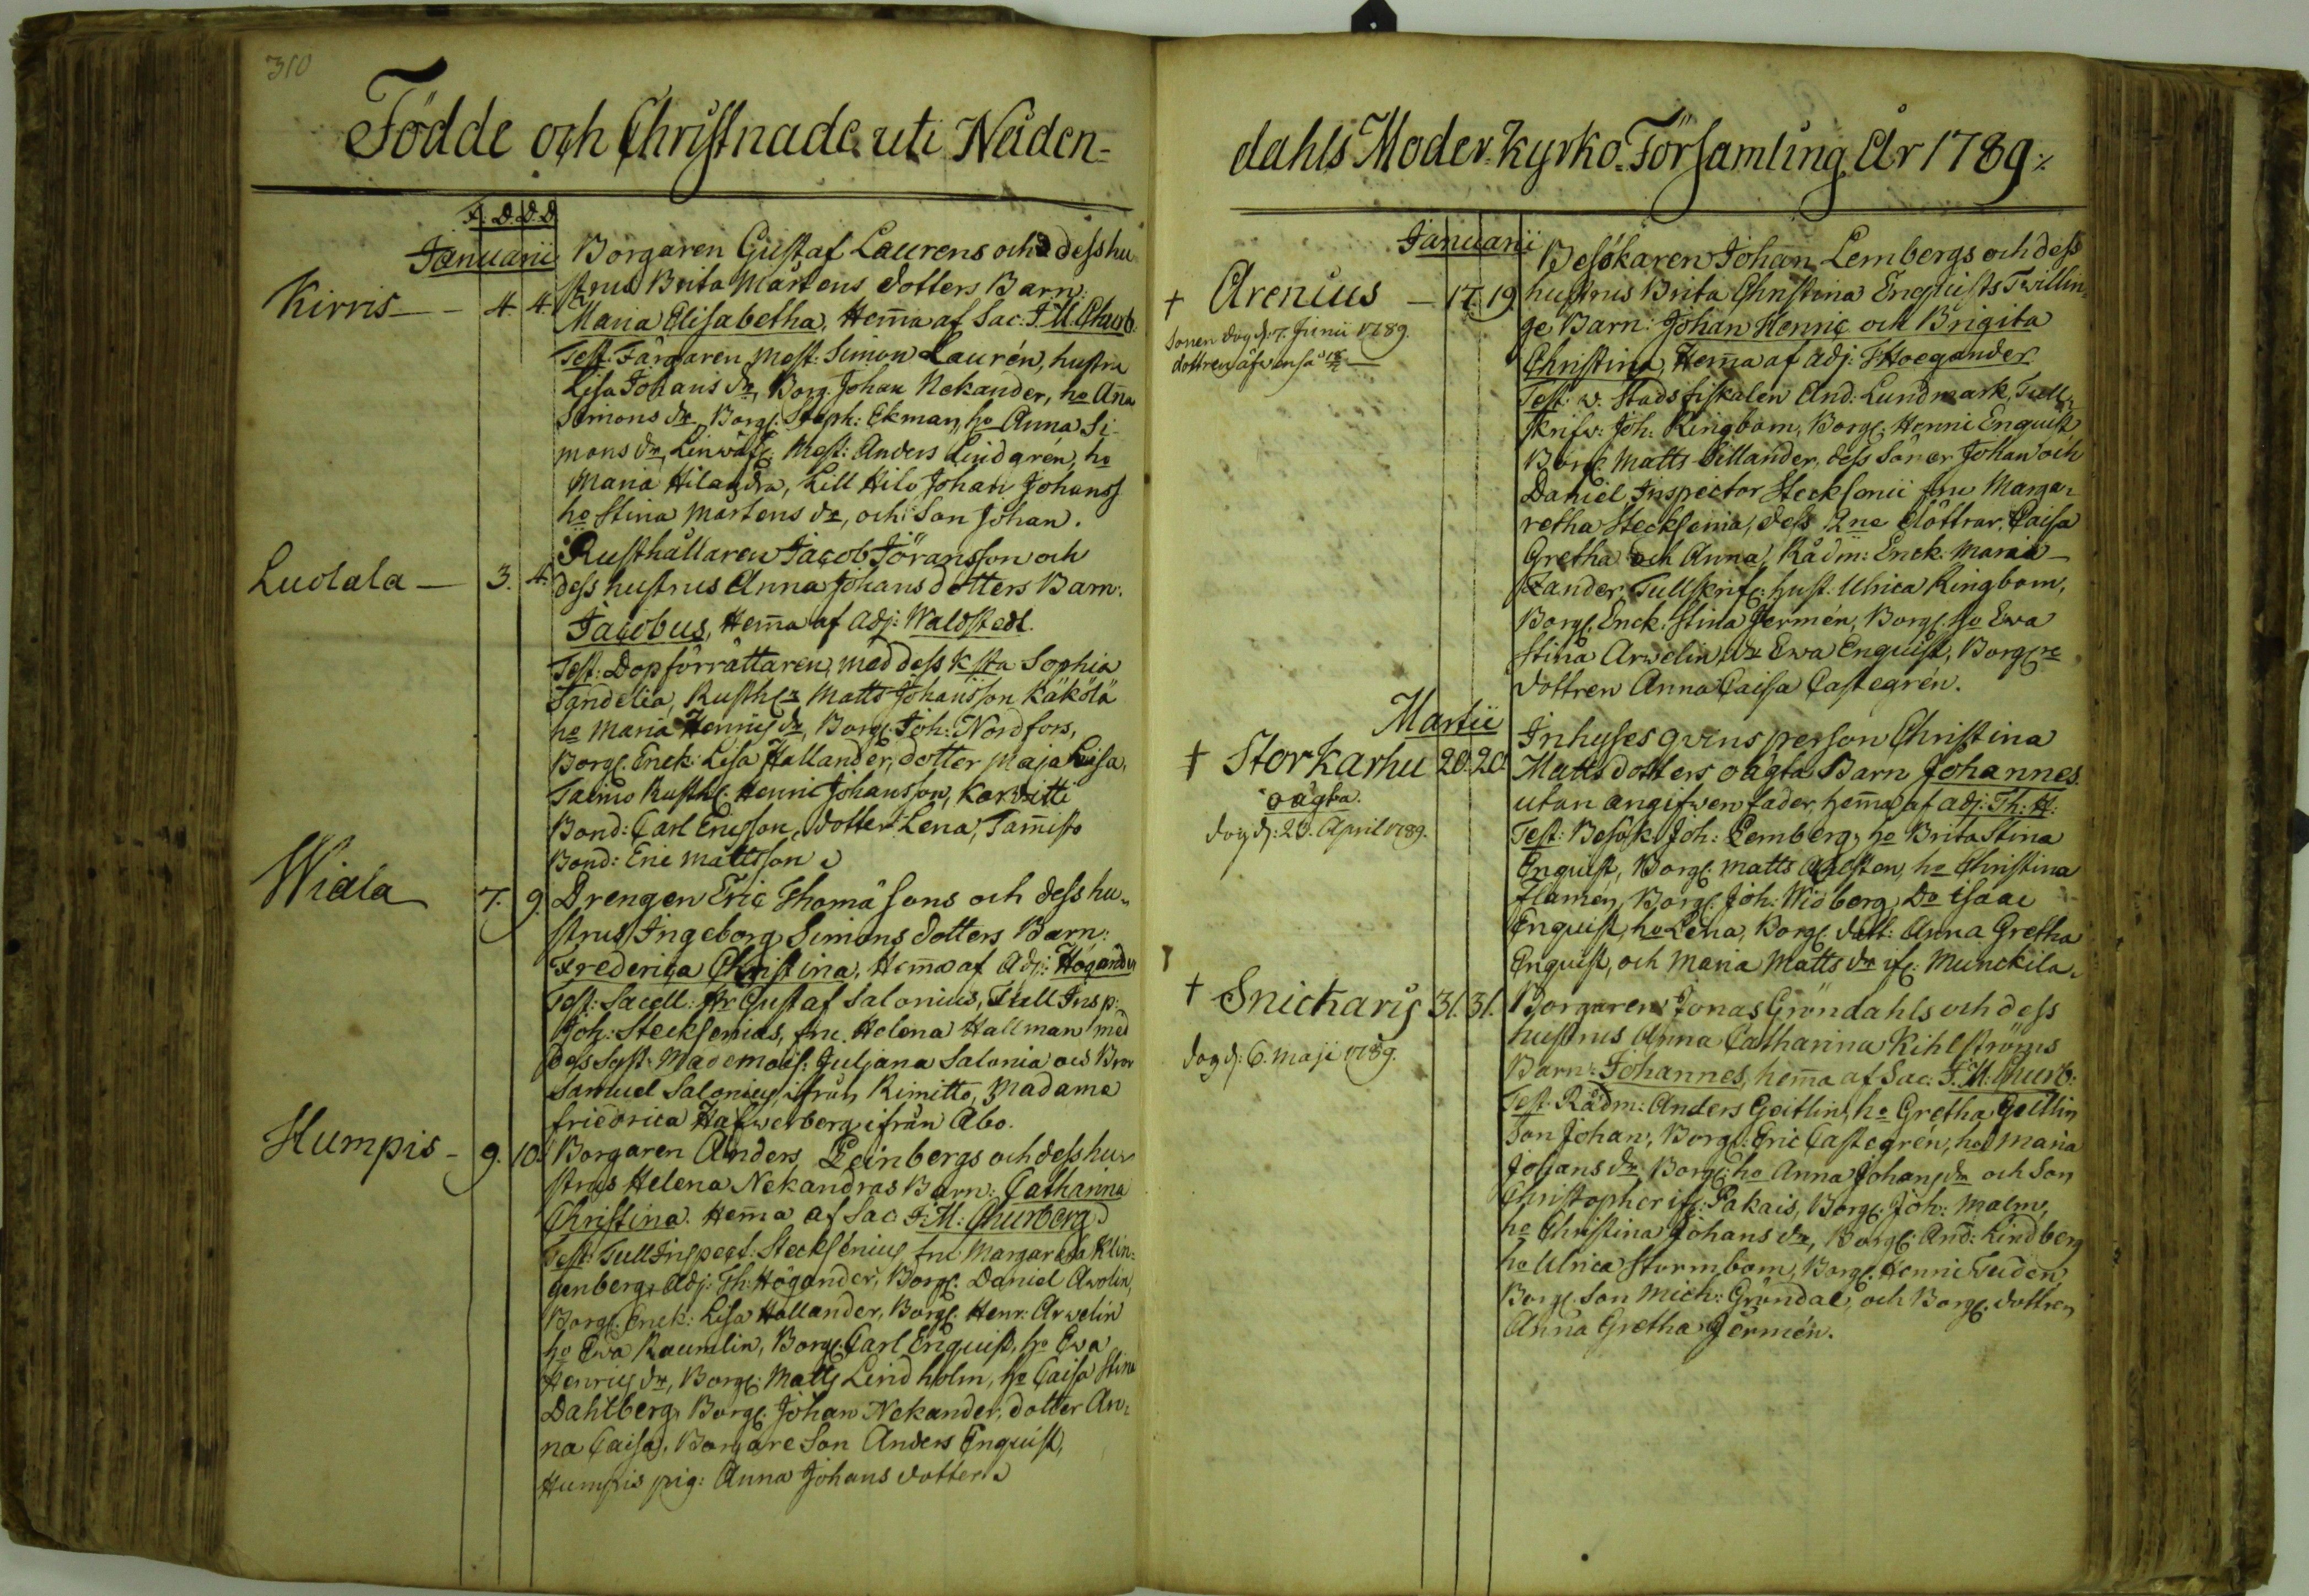 310
Födde och Christnade uti Nåden-
F. D. D. D.
Januarii
Borgaren Gustaf Laurens och dess hu
strus Brita Mårtens dotters Barn:
Kirris — 4. 4.
Maria Elisabetha, Hem̄a af Sac: F. M. Churb:
Test: Färgaren Mest: Simon Laurén, hustru
Lisa Johans dr, Borg. Johan Nekander, ho An̄a
Simons dr, Borg: Steph: Ekman, ho Anna Si-
mons dr, Linwäf: Mest: Anders Lindgrén, ho
Maria Hilandra, Lill Hilo Johan Johanss
ho Stina Mårtens dr, och Son Johan.
Rusthållaren Jacob Jöransson och
Luolala — 3. 4.
dess hustrus Anna Johans dotters Barn:
Jacobus, Hem̄a af Adj: Waldstedt.
Test: Dopförrättaren, med dess K sta Sophia
Sandelia, Rusth: Matts Johansson Käkölä
ho Maria Henrics dr, Borg: Joh: Nordfors,
Borg: Enck: Lisa Hallander, dotter Maja Lisa,
Taimo Rusth: Henric Johansson, Karvitti
Bond: Carl Ericsson, dotter Lena, Tam̄isto
Bond: Eric Mattsson
Wiala 7. 9.
Drengen Eric Thomæ Sons och dess hu-
strus Ingeborg Simons dotters Barn:
Frederica Christina, Hem̄a af Adj: Högander
Test: Sacell: Hr Gustaf Salonius, Tull Insp:
Joh: Stecksenius, fru Helena Hallman med
dess Syst: Mademois: Juliana Salonia och Bror
Samuel Salonius, ifrån Rimitto, Madame
Friedrica Hafwerberg ifrån Åbo.
Humpis - 9. 10.
Borgaren Anders Leinbergs och dess hu-
strus Helena Nekandras Barn: Catharina
Christina. Hem̄a af Sac F. M: Churberg
Test: Tull Inspect: Stecksenius, fru Margareta Klin-
genberg, Adj: Th: Högander, Borg: Daniel Awolin,
Borg: Enck: Lisa Hollander, Borg: Henr: Arwelin
ho Ewa Raumlin, Borg: Carl Enquist, ho Ewa
Henrics dr, Borg: Matts Lindholm, ho Caisa Stina
Dahlberg, Borg: Johan Nekander, dotter An-
na Caisa, Borgare Son Anders Enquist,
Humpis pig: Anna Johans dotter
dahls Moder-Kyrko-Församling År 1789.
Januarii
Besökaren Johan Lembergs och dess
† Arenius — 17. 19.
hustrus Brita Christina Enquists Twillin-
Sonen dog d: 7. Junii 1789.
dottren äfwenså 18
ge Barn: Johan Henric och Brigita
Christina, Hem̄a af Adj: Th Hoegander
Test: v. Stadsfiskalen And: Lundmark, Tull-
skrifv: Joh: Ringbom, Borg: Henric Enquist
Borg: Matts Sillander, dess Söner Johan och
Daniel, Inspector Stecksenii fru Marga-
retha Stecksenia, dess 2ne döttrar, Caisa
Gretha och Anna, Rådm: Enck: Maria
Zander, Tullskrif: hust: Ulrica Ringbom,
Borg: Enck: Stina Jermén, Borg: ho Ewa
Stina Arwelin, dr Ewa Enquist, Borgre
dottren Anna Caisa Castegrén.
Martii
Inhyses qvinsperson Christina
† Storkarhu 20. 20.
Matts dotters oägta Barn Johannes
oägta.
utan angifwen fader, hem̄a af Adj: Th: H:
dog d: 20. April 1789.
Test: Besök: Joh: Lemberg, ho Brita Stina
Enquist, Borg: Matts ho Christina
Flamén, Borg: Joh: Widberg, Do Isaac
Enquist, ho Lena, Borg: dott: Anna Gretha
Enquist, och Maria Matts dr if: Munckila.
† Snickaris 31. 31.
Borgaren Jonas Gröndahls och dess
hustrus Anna Catharina Kihlströms
dog d: 6. Maji 1789.
Barn: Johannes, hem̄a af Sac: F. M: Churb:
Test: Rådm: Anders Geitlin, ho Gretha Geitlin
Son Johan, Borg: Eric Castegrén, ho Maria
Johans dr, Borg: ho Anna Johans dr och Son
Christopher if: Pakais, Borg: Joh: Malm,
ho Christina Johans dr, Borg: And: Lindberg
ho Ulrica Stormbom, Borg: Henric Tuden,
Borg: Son Mich: Gröndal, och Borg: dottren
Anna Gretha Jermén.